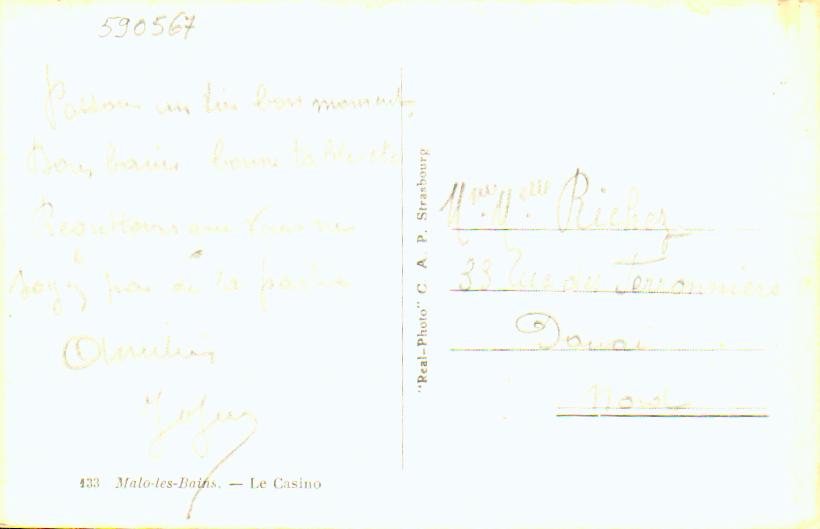 590567
Passons un très bon moment,
Bons bains bonne table etc
Regrettons que vous ne
soyez pas de la partie
Amitiés
"Real-Photo" C A. P. Strasbourg
Richez
33 Rue du Ferronniers
Douai
Nord
133 Malo-les-Bains. — Le Casino